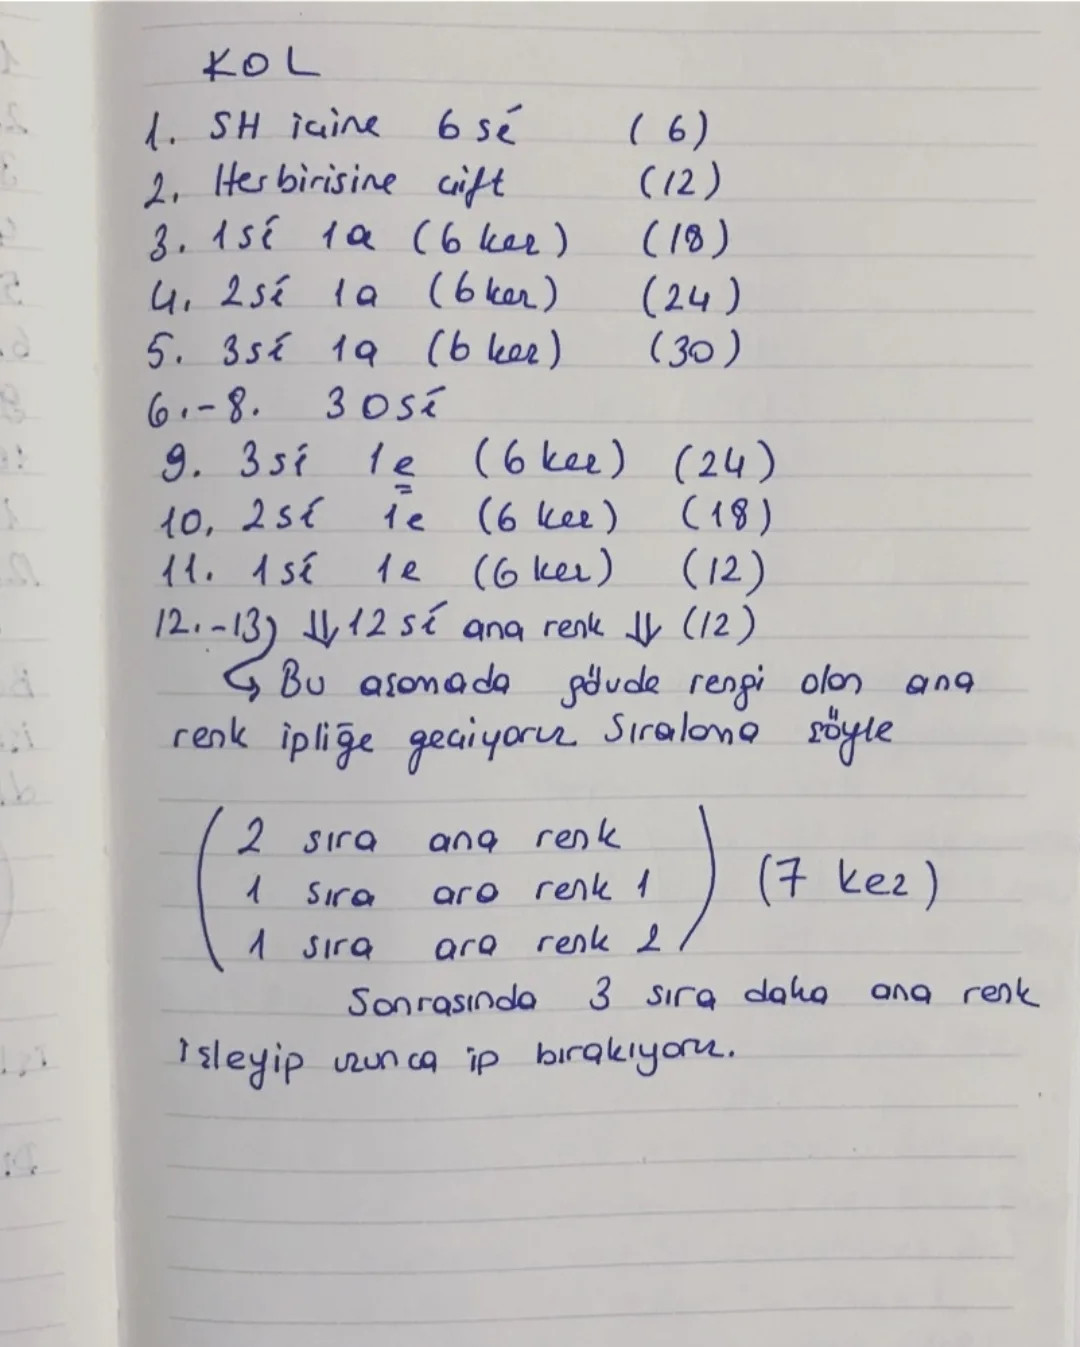 KOL
1. SH içine 6 sı (6)
2. Herbirisine çift (12)
3. 1sı 1a (6 kez) (18)
4. 2sı 1a (6 kez) (24)
5. 3sı 1a (6 kez) (30)
6.-8. 30sı
9. 3sı 1e (6 kez) (24)
10. 2sı 1e (6 kez) (18)
11. 1sı 1e (6 kez) (12)
12.-13) ⇓ 12 sı ana renk ⇓ (12)
↪ Bu aşamada gövde rengi olan ana
renk ipliğe geçiyoruz Sıralama şöyle
2 sıra ana renk
1 sıra ara renk 1 (7 kez)
1 sıra ara renk 2
Sonrasında 3 sıra daha ana renk
işleyip uzunca ip bırakıyoruz.